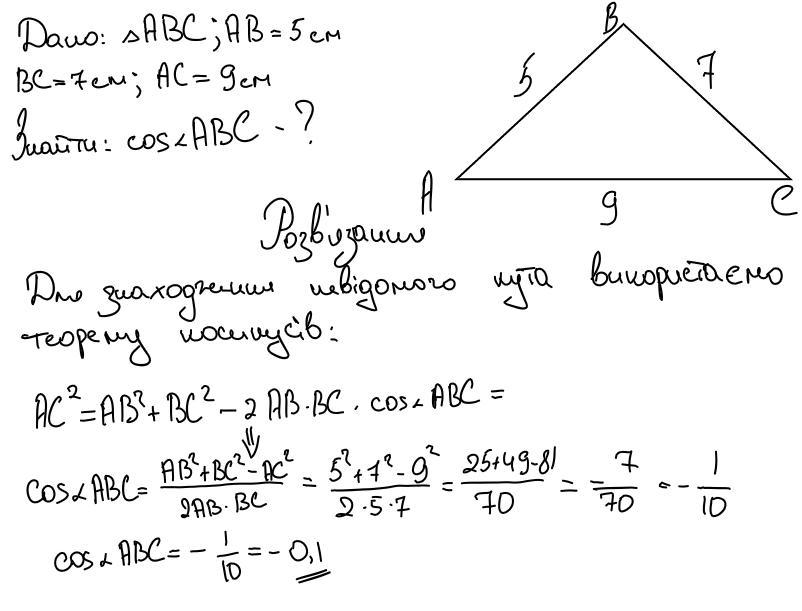 Дано: △ABC; AB = 5 см
BC = 7 см; AC = 9 см
Знайти: cos∠ABC - ?
B
5
7
A
9
C
Розв'язання
Для знаходження невідомого кута використаємо
теорему косинусів:
AC² = AB² + BC² - 2 AB · BC · cos∠ABC =
⇓
cos∠ABC = (AB² + BC² - AC²)/(2AB · BC) = (5² + 7² - 9²)/(2 · 5 · 7) = (25 + 49 - 81)/70 = = -7/70 = - 1/10
cos∠ABC = - 1/10 = - 0,1